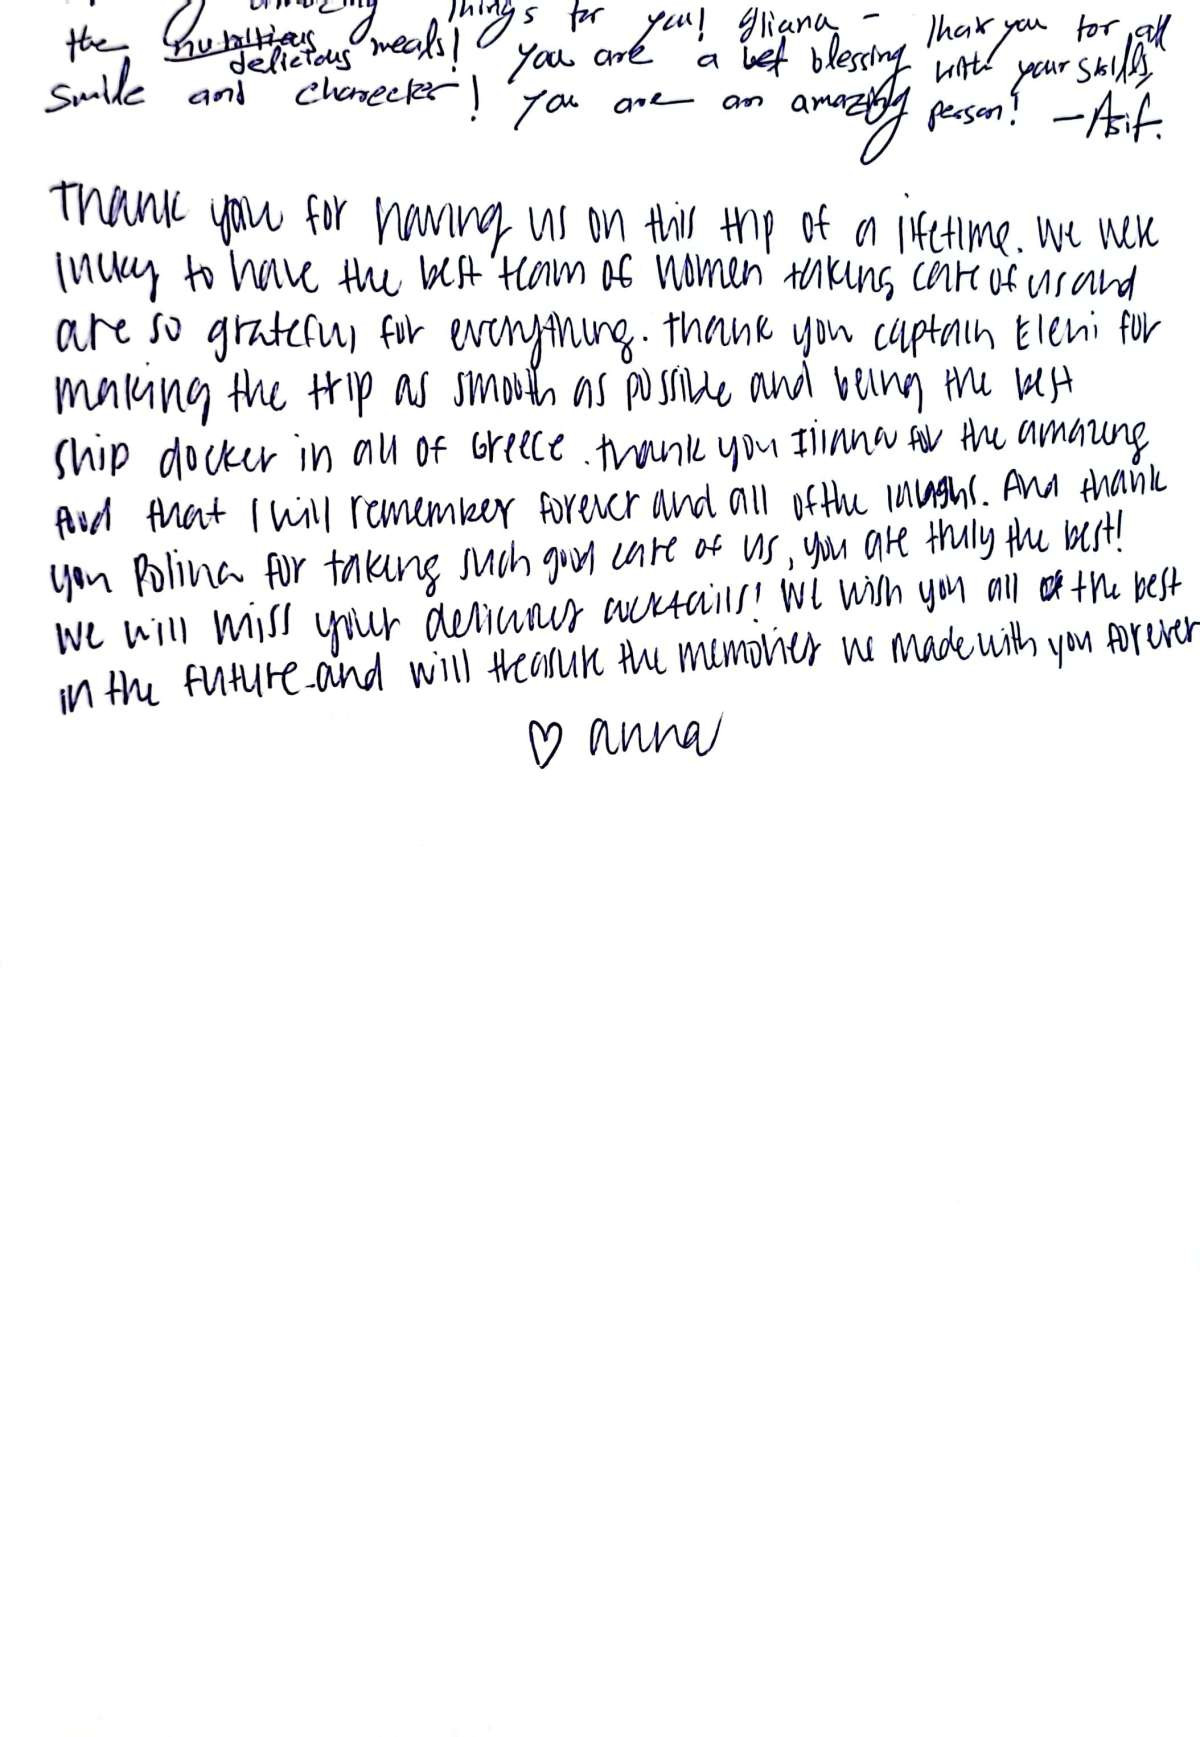 amazing things for you! Iliana - Thank you for all
the nutritious delicious meals! You are a bet blessing with your skills,
Smile and charecter! You are an amazing person! - Asif.
Thank you for having us on this trip of a lifetime. We were
lucky to have the best team of women taking care of us and
are so grateful for everything. Thank you captain Eleni for
making the trip as smooth as possible and being the best
ship docker in all of Greece. Thank you Iliana for the amazing
food that I will remember forever and all of the laughs. And thank
you Polina for taking such good care of us, you are truly the best!
We will miss your delicious cocktails! We wish you all of the best
in the future and will treasure the memories we made with you forever
♡ anna